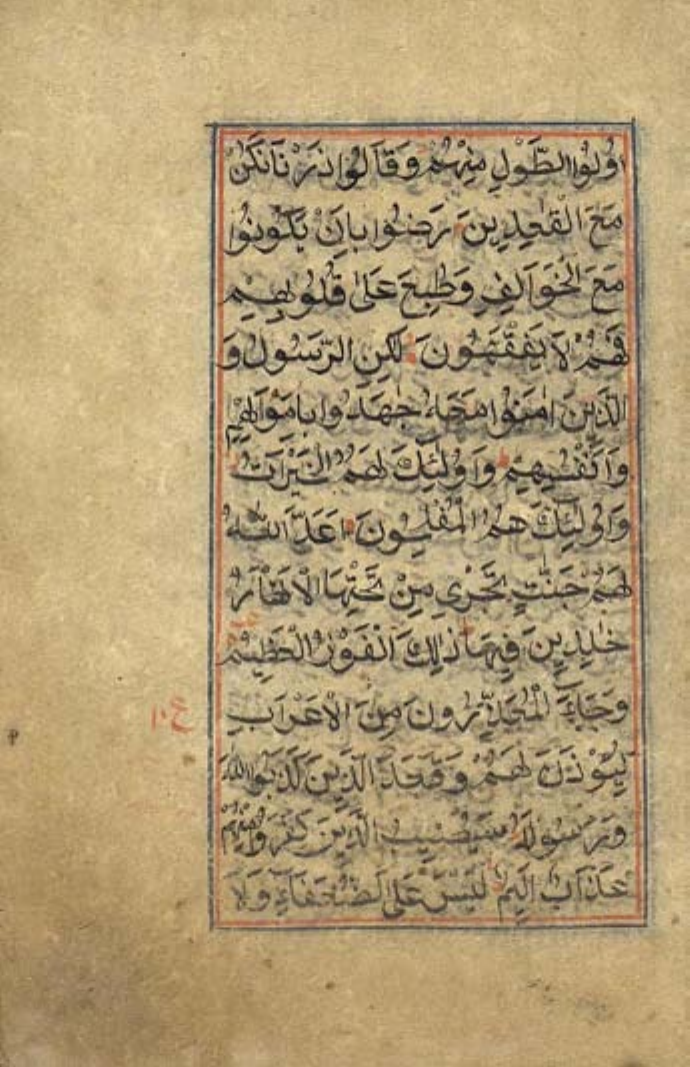 اُولُوا الطَّوْلِ مِنْهُمْ وَقَالُوا ذَرْنَا نَكُنْ
مَعَ الْقٰعِدِينَ رَضُوا بِاَنْ يَكُونُوا
مَعَ الْخَوَالِفِ وَطُبِعَ عَلٰى قُلُوبِهِمْ
فَهُمْ لَا يَفْقَهُونَ لٰكِنِ الرَّسُولُ وَ
الَّذِينَ اٰمَنُوا مَعَهُ جٰهَدُوا بِاَمْوَالِهِمْ
وَاَنْفُسِهِمْ وَاُولٰئِكَ لَهُمُ الْخَيْرَاتُ
وَاُولٰئِكَ هُمُ الْمُفْلِحُونَ اَعَدَّ اللّٰهُ
لَهُمْ جَنّٰتٍ تَجْرِى مِنْ تَحْتِهَا الْاَنْهَارُ
خٰلِدِينَ فِيهَا ذٰلِكَ الْفَوْزُ الْعَظِيمُ
وَجَاءَ الْمُعَذِّرُونَ مِنَ الْاَعْرَابِ
ع ١٠
لِيُؤْذَنَ لَهُمْ وَقَعَدَ الَّذِينَ كَذَبُوا اللّٰهَ
وَرَسُولَهُ سَيُصِيبُ الَّذِينَ كَفَرُوا مِنْهُمْ
عَذَابٌ اَلِيمٌ لَيْسَ عَلَى الضُّعَفَاءِ وَلَا